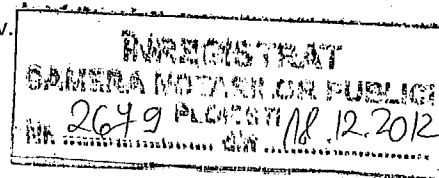 v.
ÎNREGISTRAT
CAMERA NOTARILOR PUBLICI
PLOIEŞTI
NR. 2679 din 18.12.2012